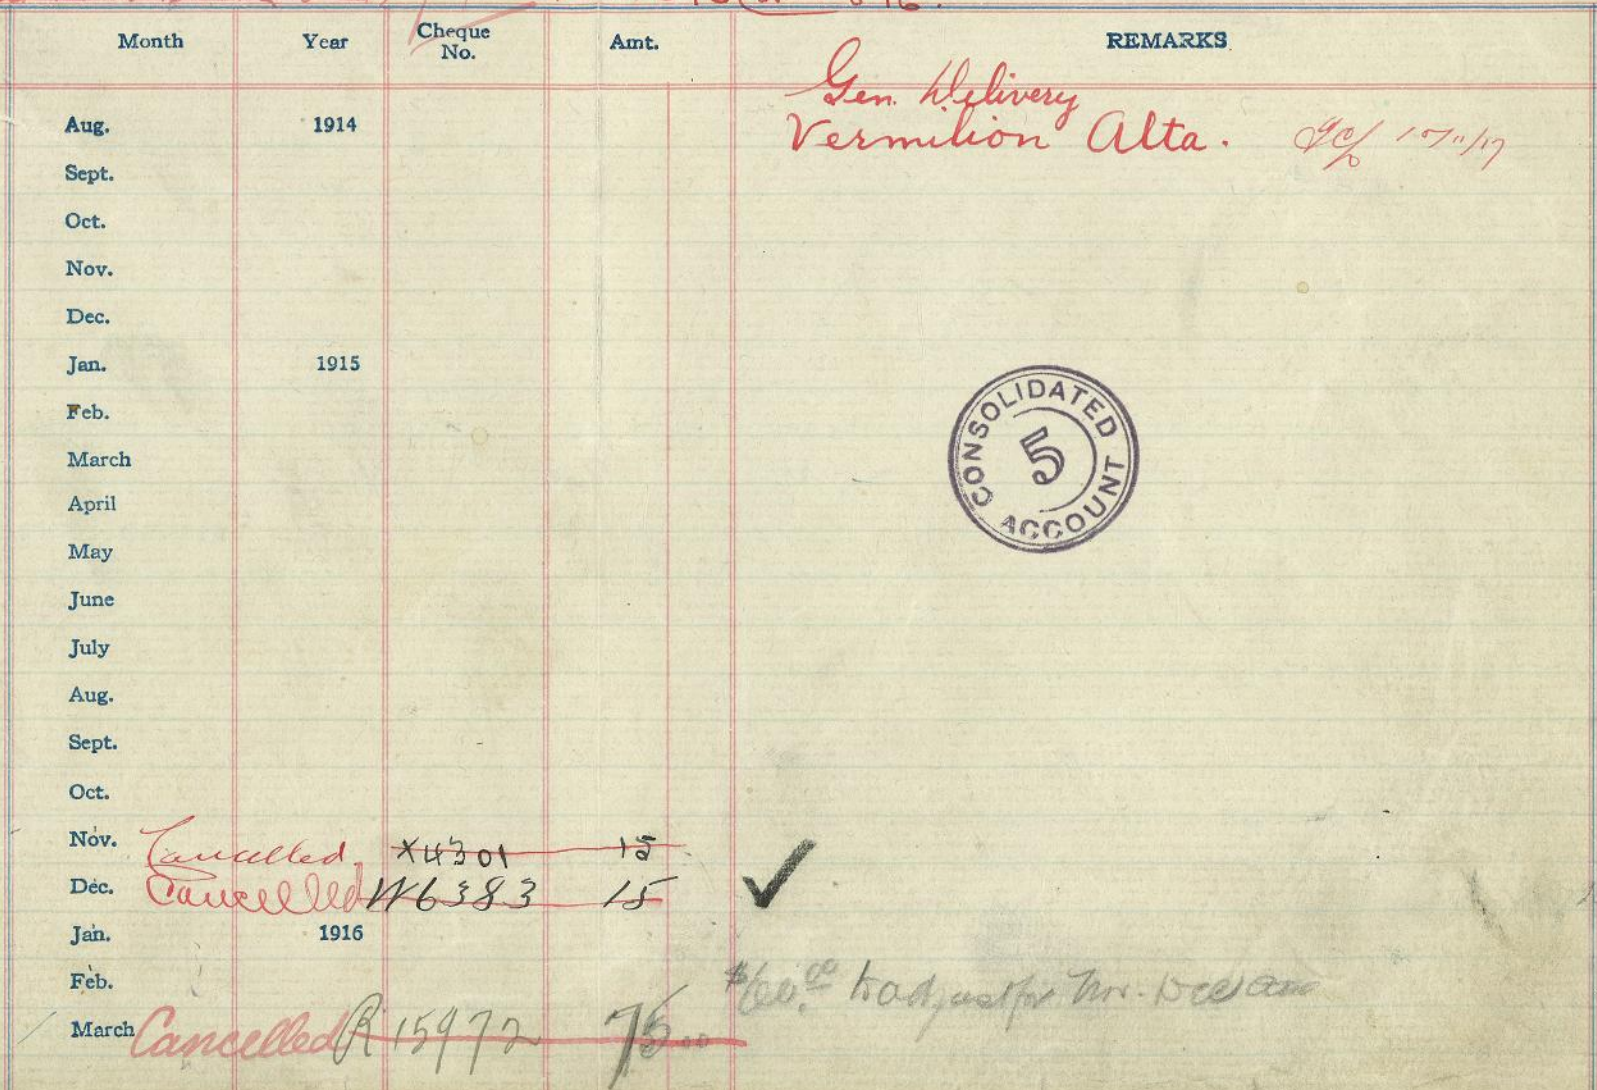 Month Year Cheque No. Amt. REMARKS
Gen. Delivery
Aug. 1914 Vermilion Alta.
Sept.
Oct.
Nov.
Dec.
Jan. 1915
Feb.
March
CONSOLIDATED ACCOUNT 5
April
May
June
July
Aug.
Sept.
Oct.
Nov. Cancelled. X4301 15
Dec. Cancelled W6383 15 ✓
Jan. 1916
Feb. $60.00 to adjust for Nov. Dec
March Cancelled R 15972 75.00